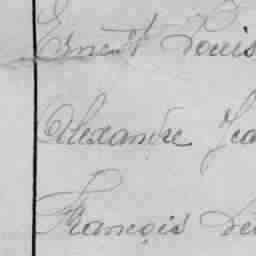 Ernest Louis
Alexandre Jea
François